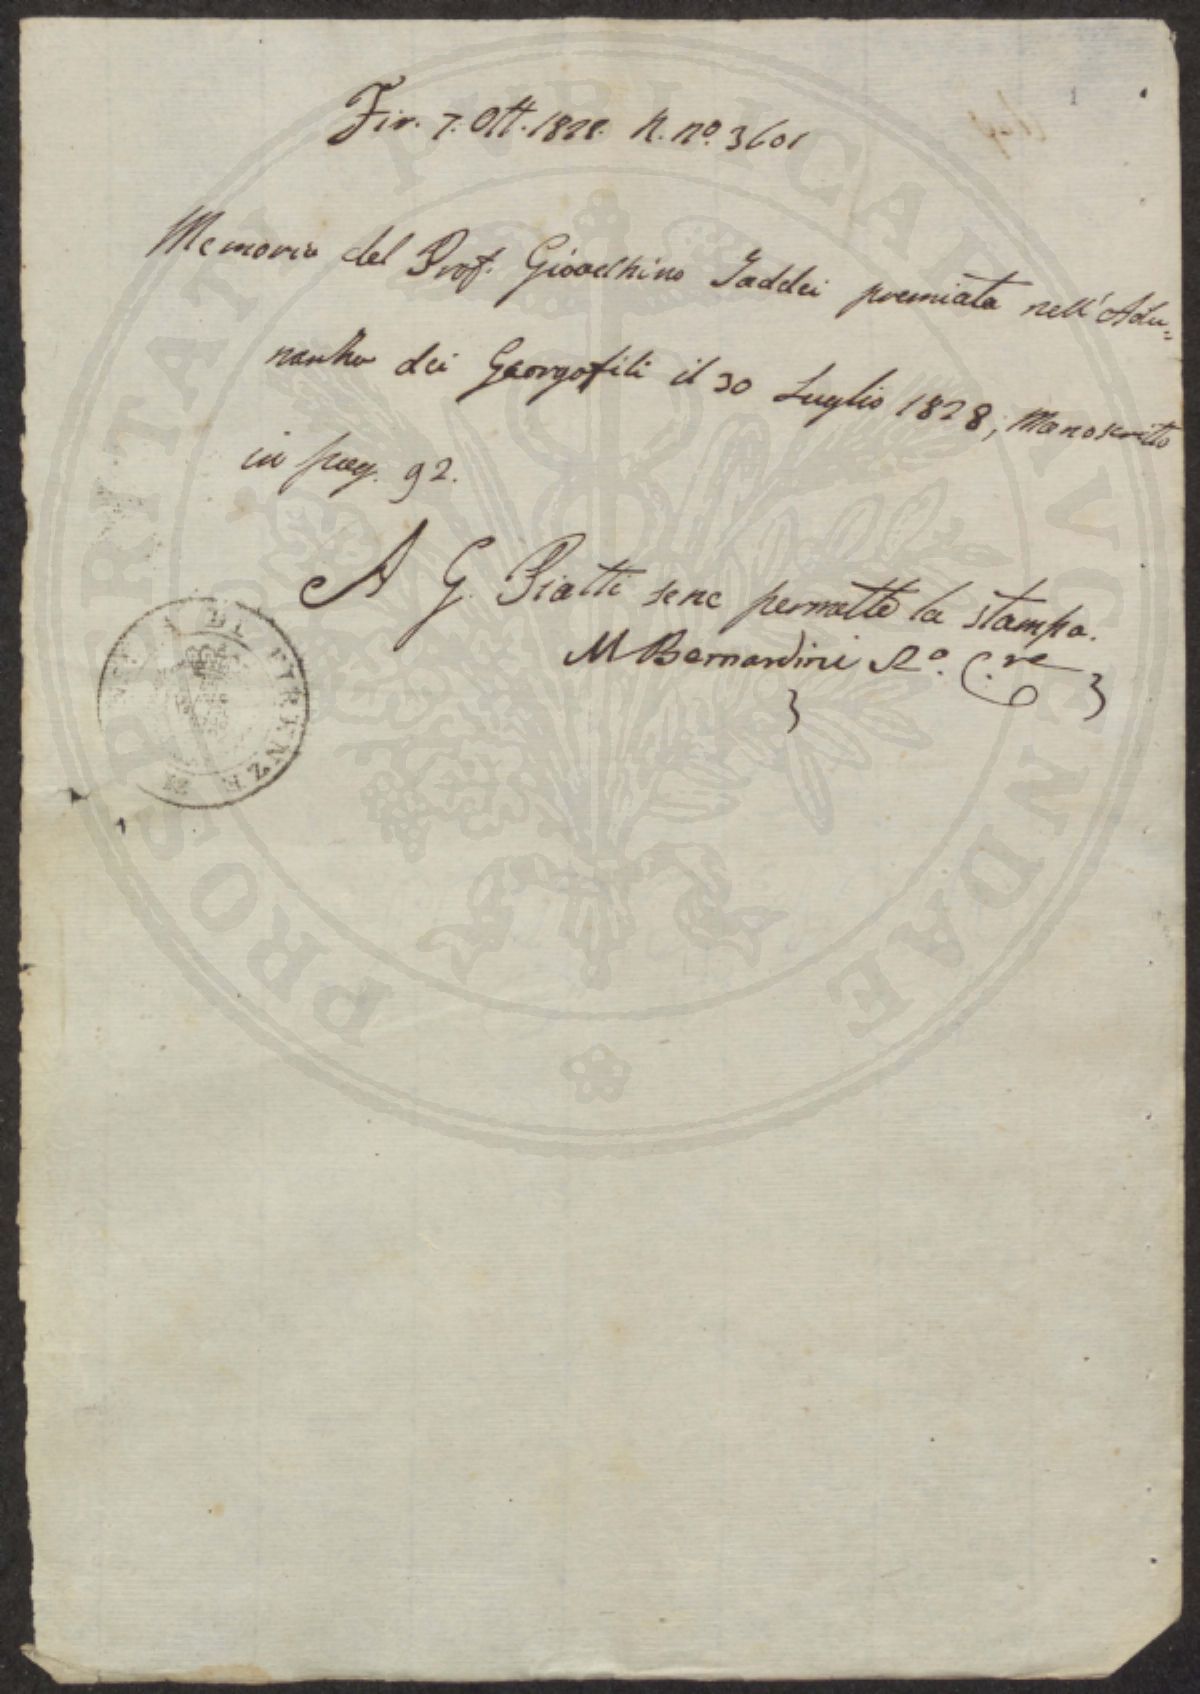 1
Fir. 7. Ott. 1828. N. no. 3601
Memoria del Prof. Gioacchino Taddei premiata nell'Adu=
nanza dei Georgofili il 30 Luglio 1828, Manoscritto
in pag. 92.
A G. Piatti sene permette la stampa.
M Bernardini Ro. C.re
DI FIRENZE
PROSPERITATI PUBLICAE AUGENDAE